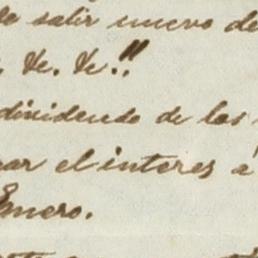 de salir nuevo de
&c. &c.!!
dividendo de las
el interes á
Enero.